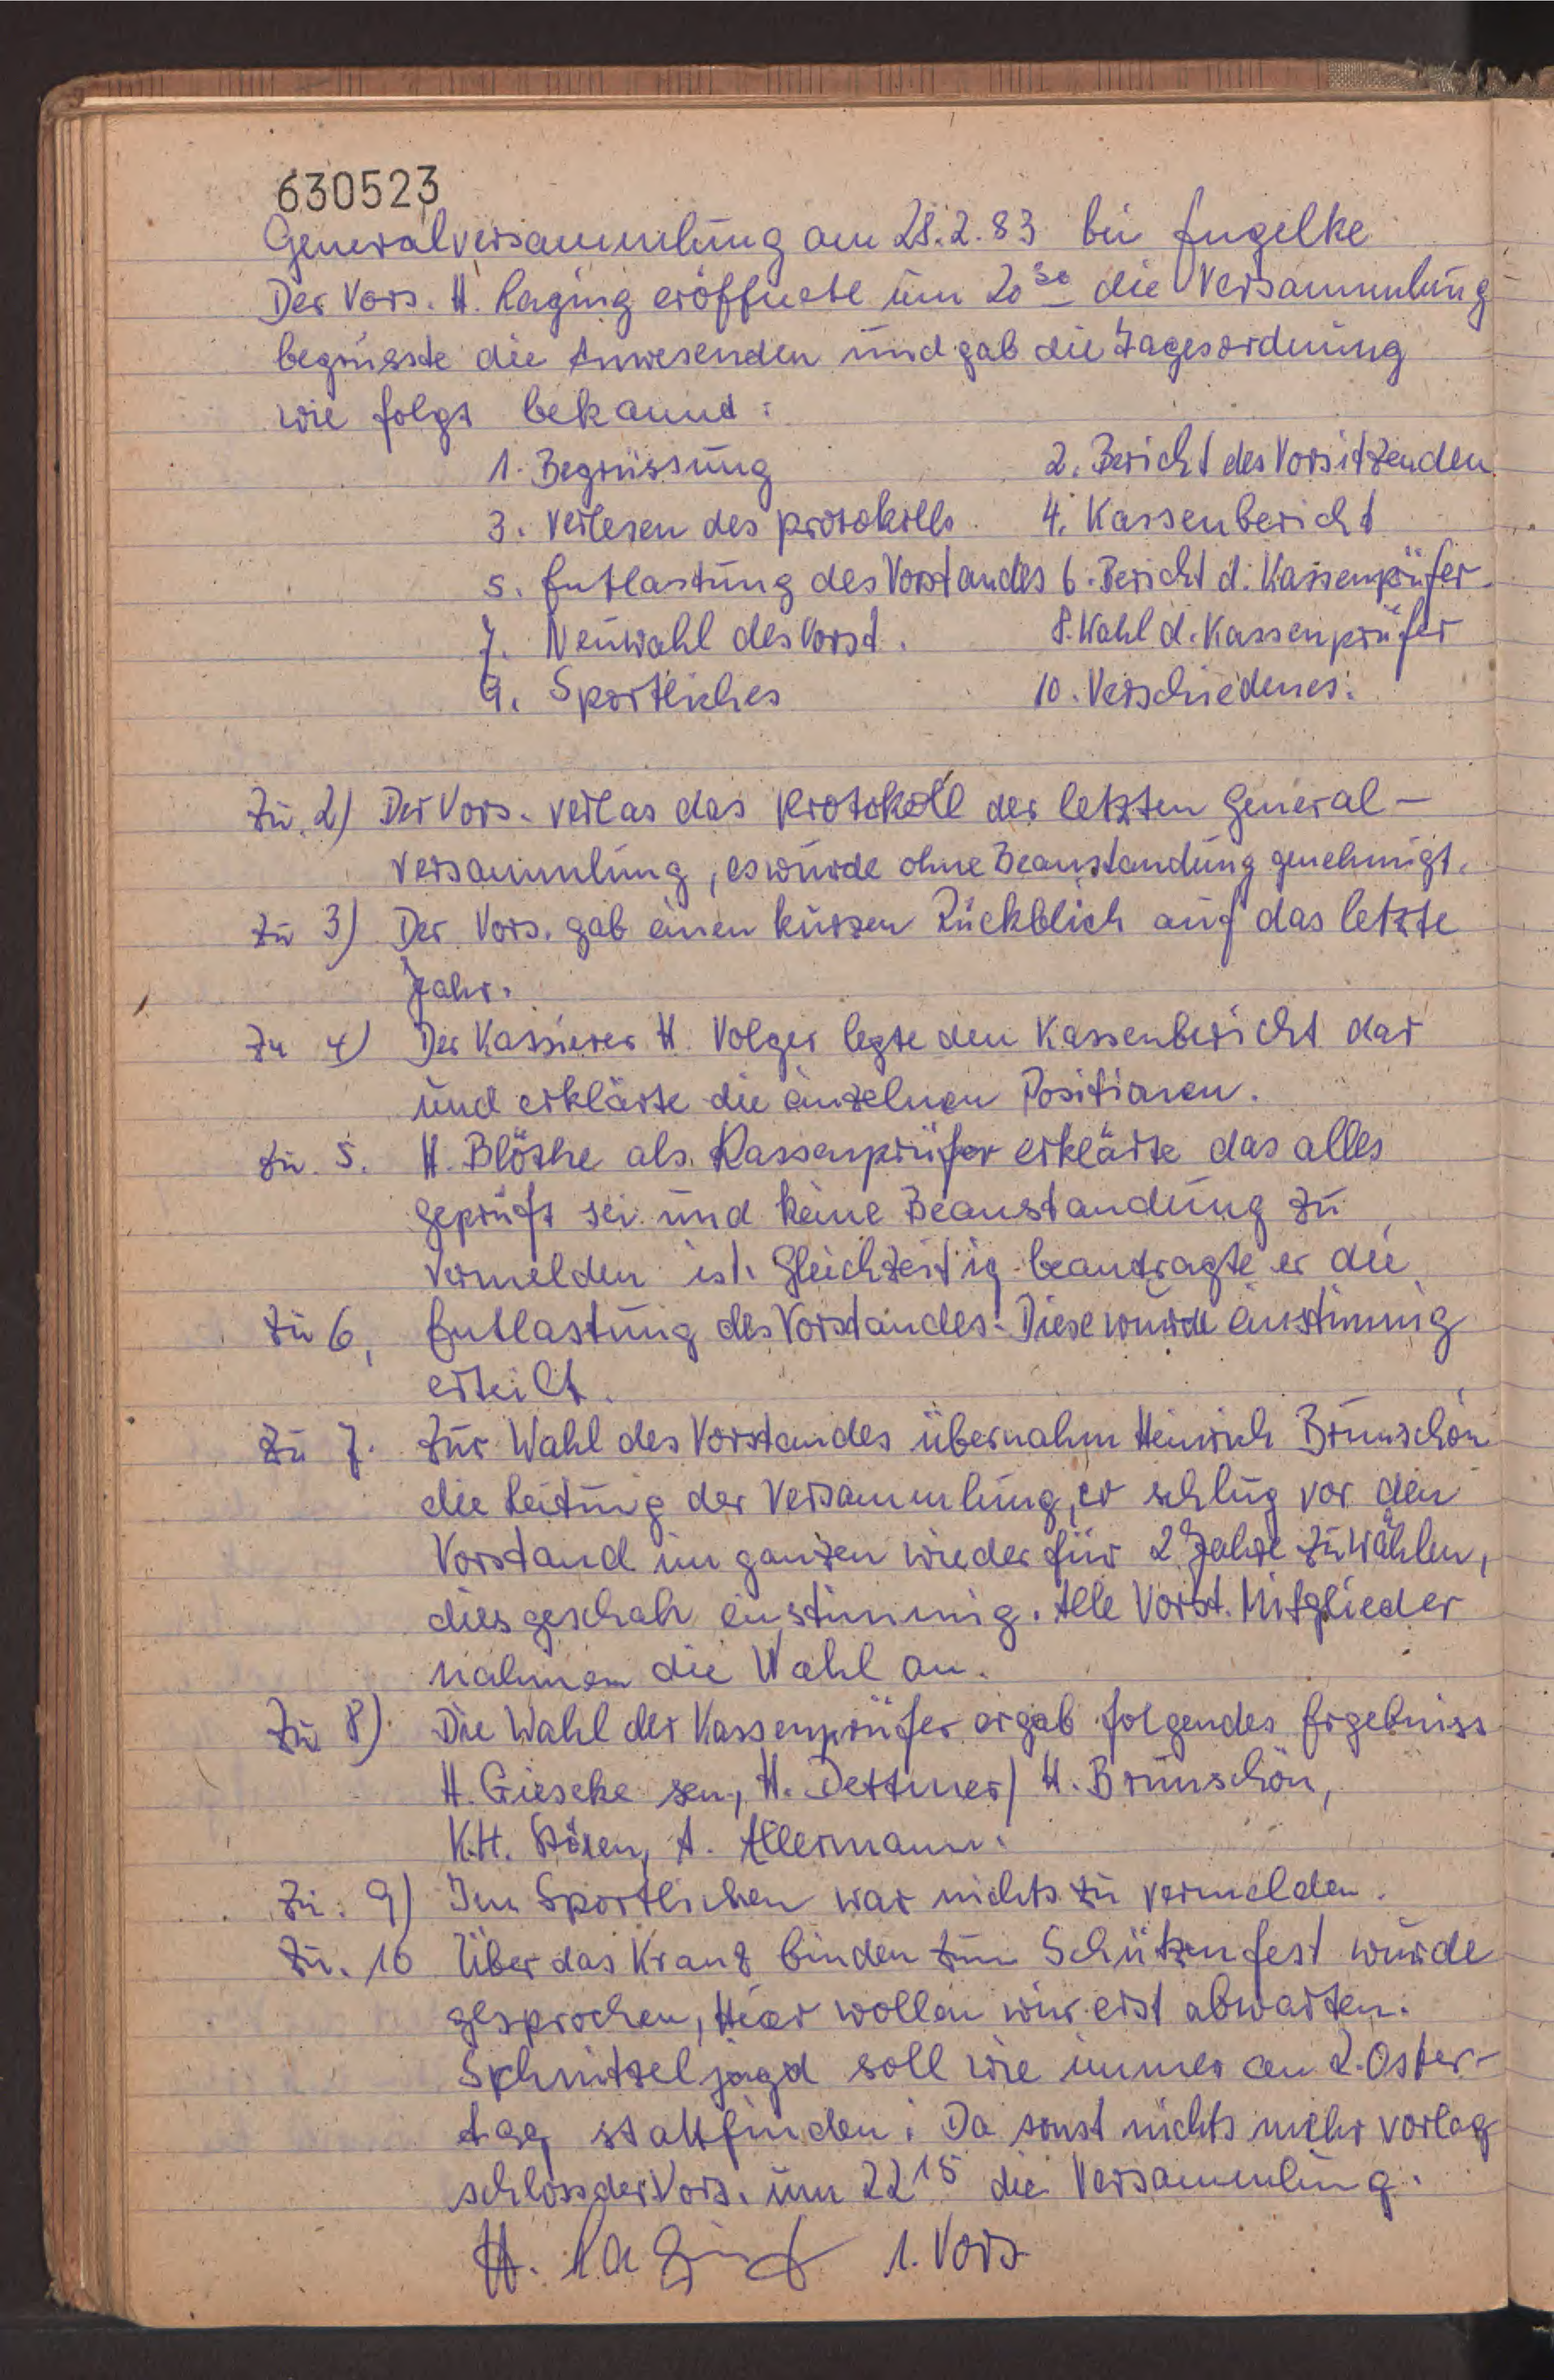 630523
Generalversammlung am 28.2.83 bei Engelke
Der Vors. H. Laging eröffnete um 20³⁰ die Versammlung
begrüsste die Anwesenden und gab die Tagesordnung
wie folgt bekannt:
1. Begrüssung 2. Bericht des Vorsitzenden
3. Verlesen des Protokolls 4. Kassenbericht
5. Entlastung des Vorstandes 6. Bericht d. Kassenprüfer
7. Neuwahl des Vorst. 8. Wahl d. Kassenprüfer
9. Sportliches 10. Verschiedenes.
Zu. 2) Der Vors. verlas das Protokoll der letzten General-
versammlung, es wurde ohne Beanstandung genehmigt.
Zu 3) Der Vors. gab einen kurzen Rückblich auf das letzte
Jahr.
Zu 4) Der Kassierer H. Volger legte den Kassenbericht dar
und erklärte die einzelnen Positionen.
Zu. 5. H. Blöthe als Kassenprüfer erklärte das alles
geprüft sei und keine Beanstandung zu
vermelden ist. Gleichzeitig beantragte er die
Zu 6, Entlastung des Vorstandes. Diese wurde einstimmig
erteilt.
Zu 7. Zur Wahl des Vorstandes übernahm Heinrich Brunschön
die Leitung der Versammlung, er schlug vor den
Vorstand im ganzen wieder für 2 Jahre zu wählen,
dies geschah einstimmig. Alle Vorst. Mitglieder
nahmen die Wahl an.
Zu 8) Die Wahl der Kassenprüfer ergab folgendes Ergebniss
H. Gieseke sen., H. Dettmer / H. Brunschön,
K.H. A. Allermann.
Zu: 9) Im Sportlichen war nichts zu vermelden.
Zu. 10 Über das Kranz binden zum Schützenfest wurde
gesprochen, Hier wollen wir erst abwarten.
Schnitzeljagd soll wie immer am 2. Oster-
tag stattfinden. Da sonst nichts mehr vorlag
schloss der Vors. um 22¹⁵ die Versammlung.
H. Laging 1. Vors